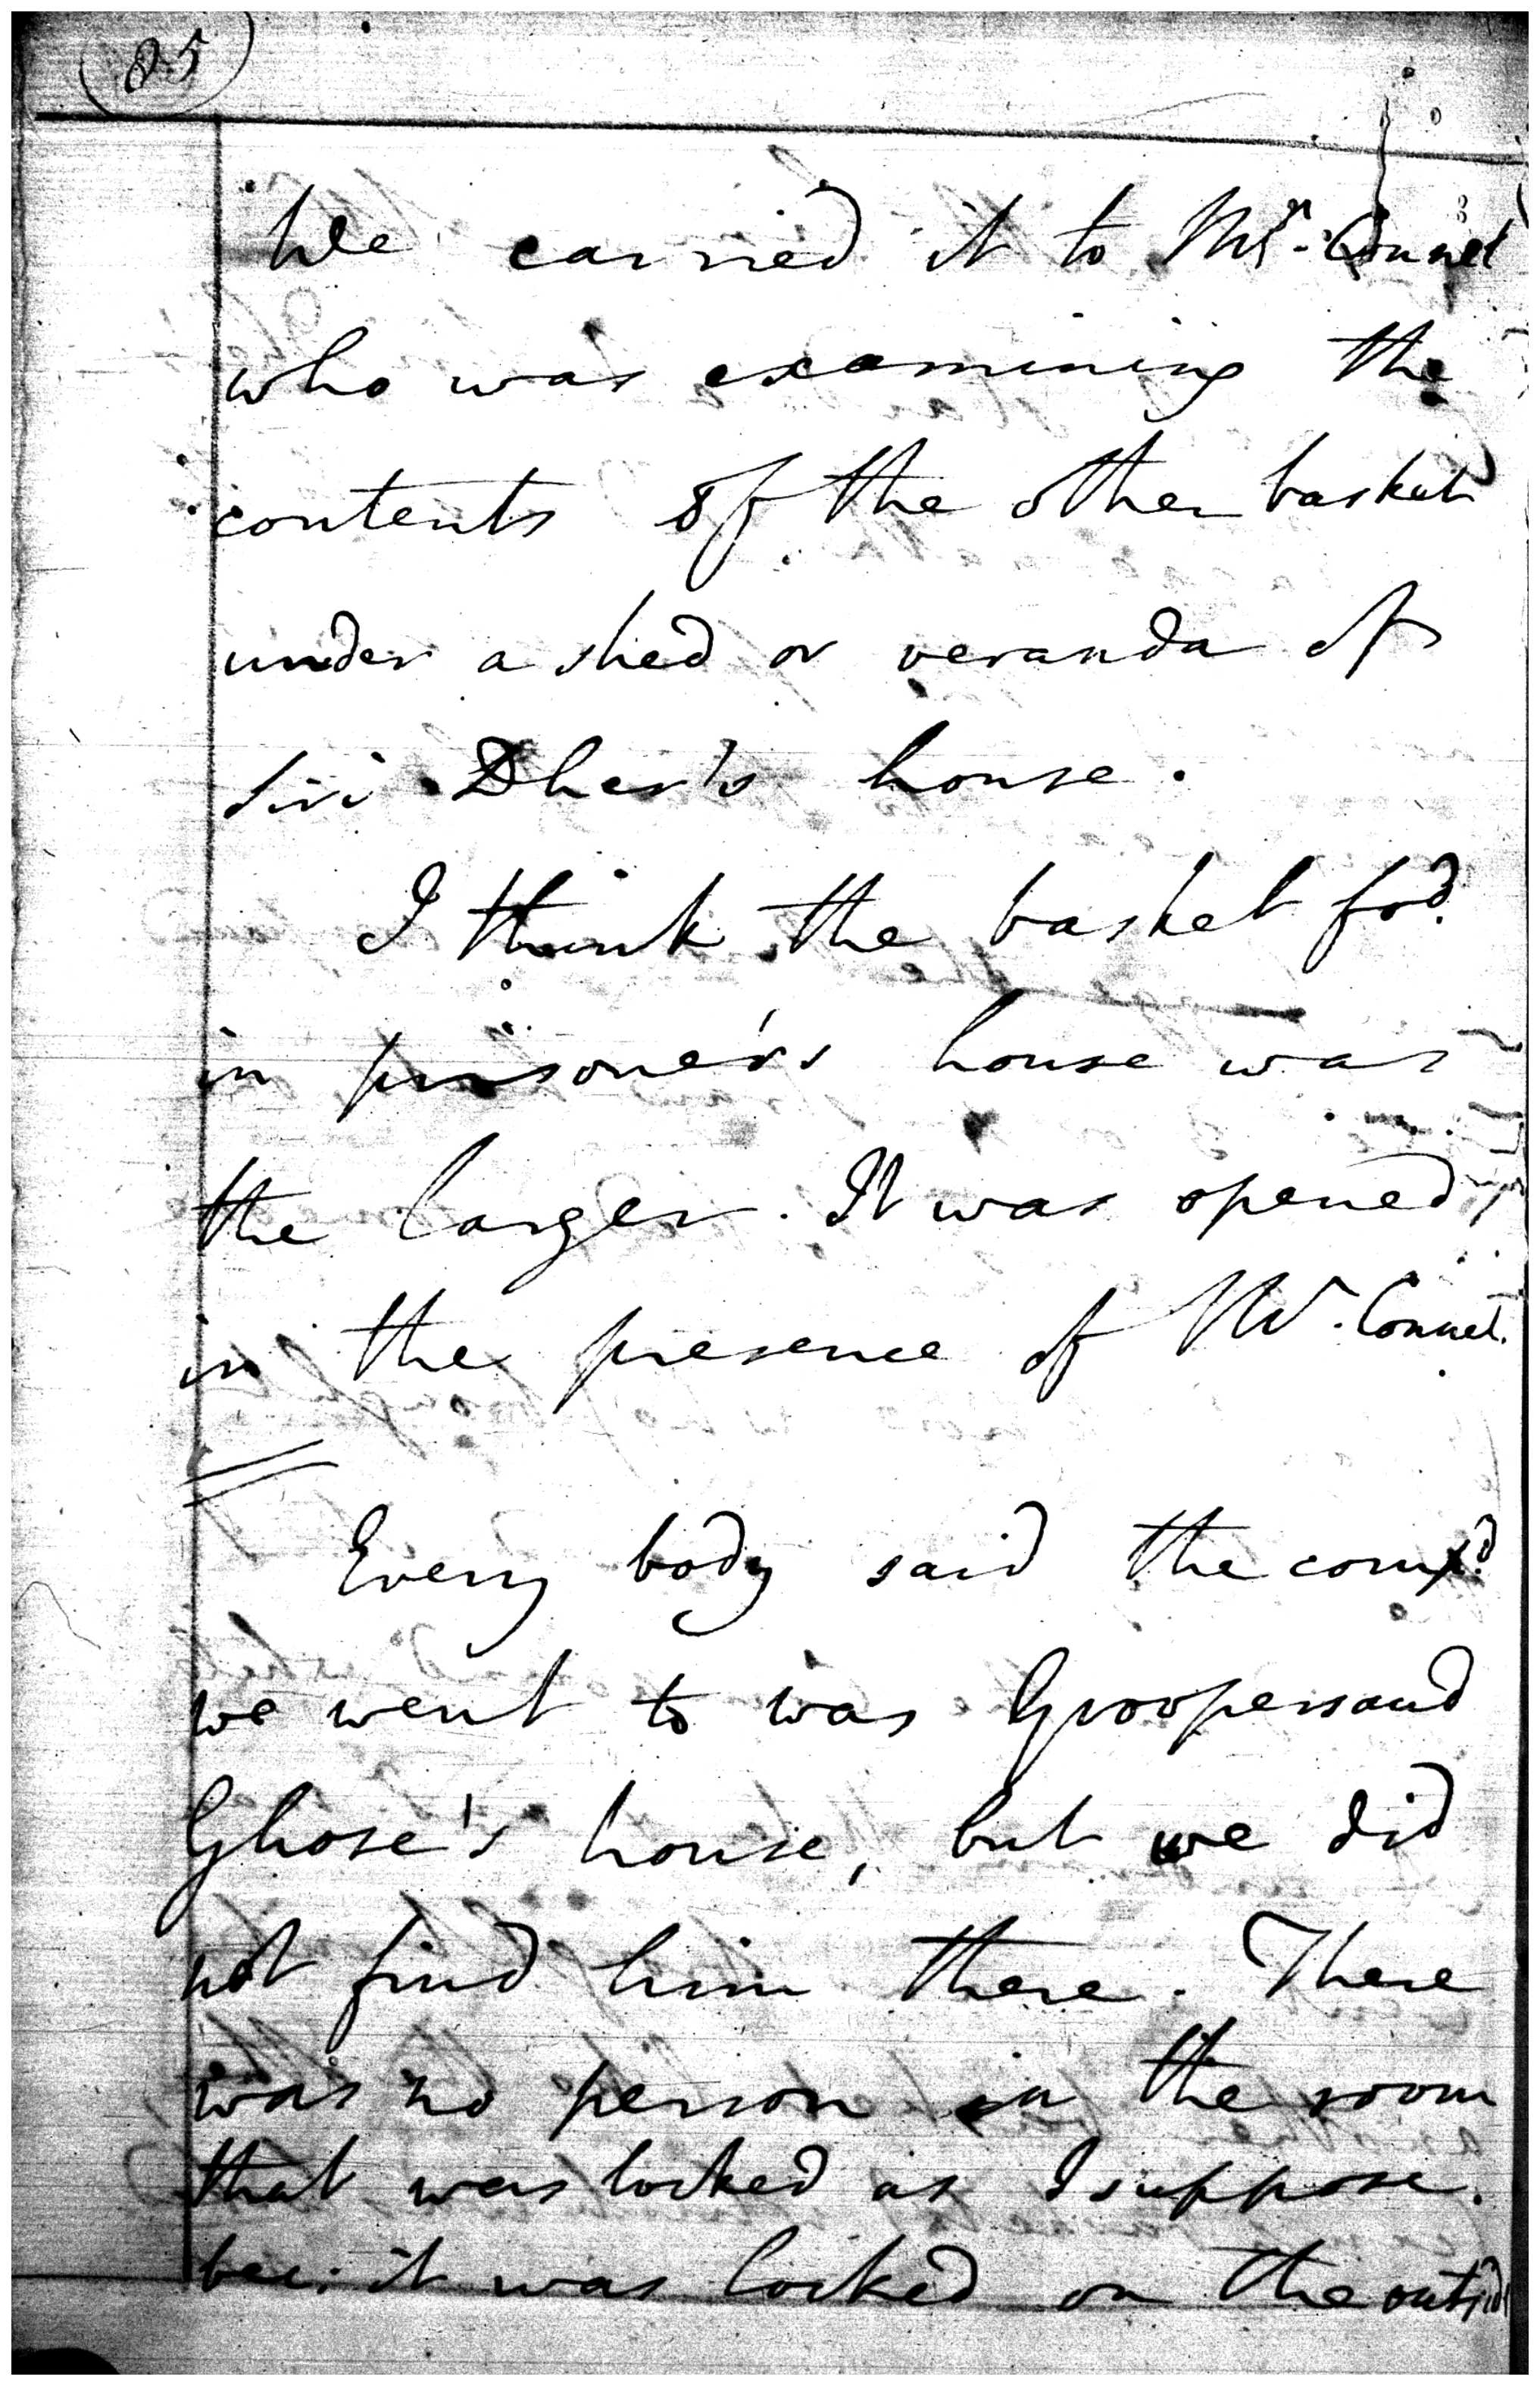 85
We carried it to Mr. Connel
who was examining the
contents of the other basket
under a shed or veranda of
Siri Dher's house.
I think the basket fod.
in prisoner's house was
the larger. It was opened
in the presence of Mr. Connel.
Every body said the compd.
we went to was Groopersaud
Ghose's house, but we did
not find him there. There
was no person in the room
that was locked as I suppose.
bec. it was locked on the outside